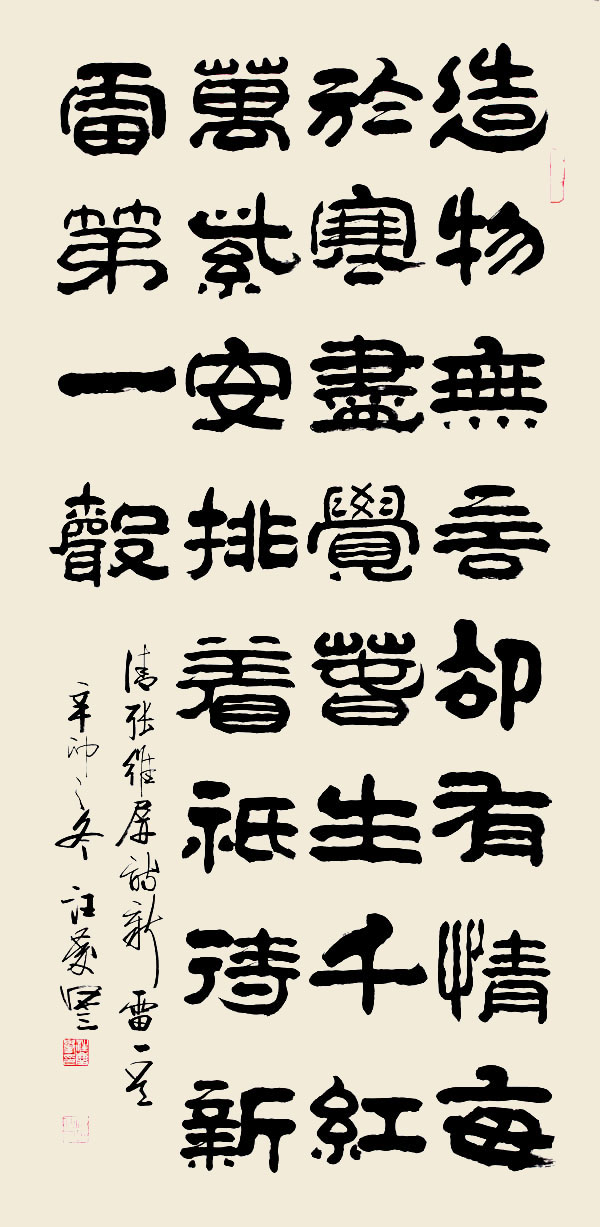 造物無言却有情每
於寒盡覺春生千紅
萬紫安排着祇待新
雷第一聲
清张維屏詩新雷一首
辛卯之冬 汪